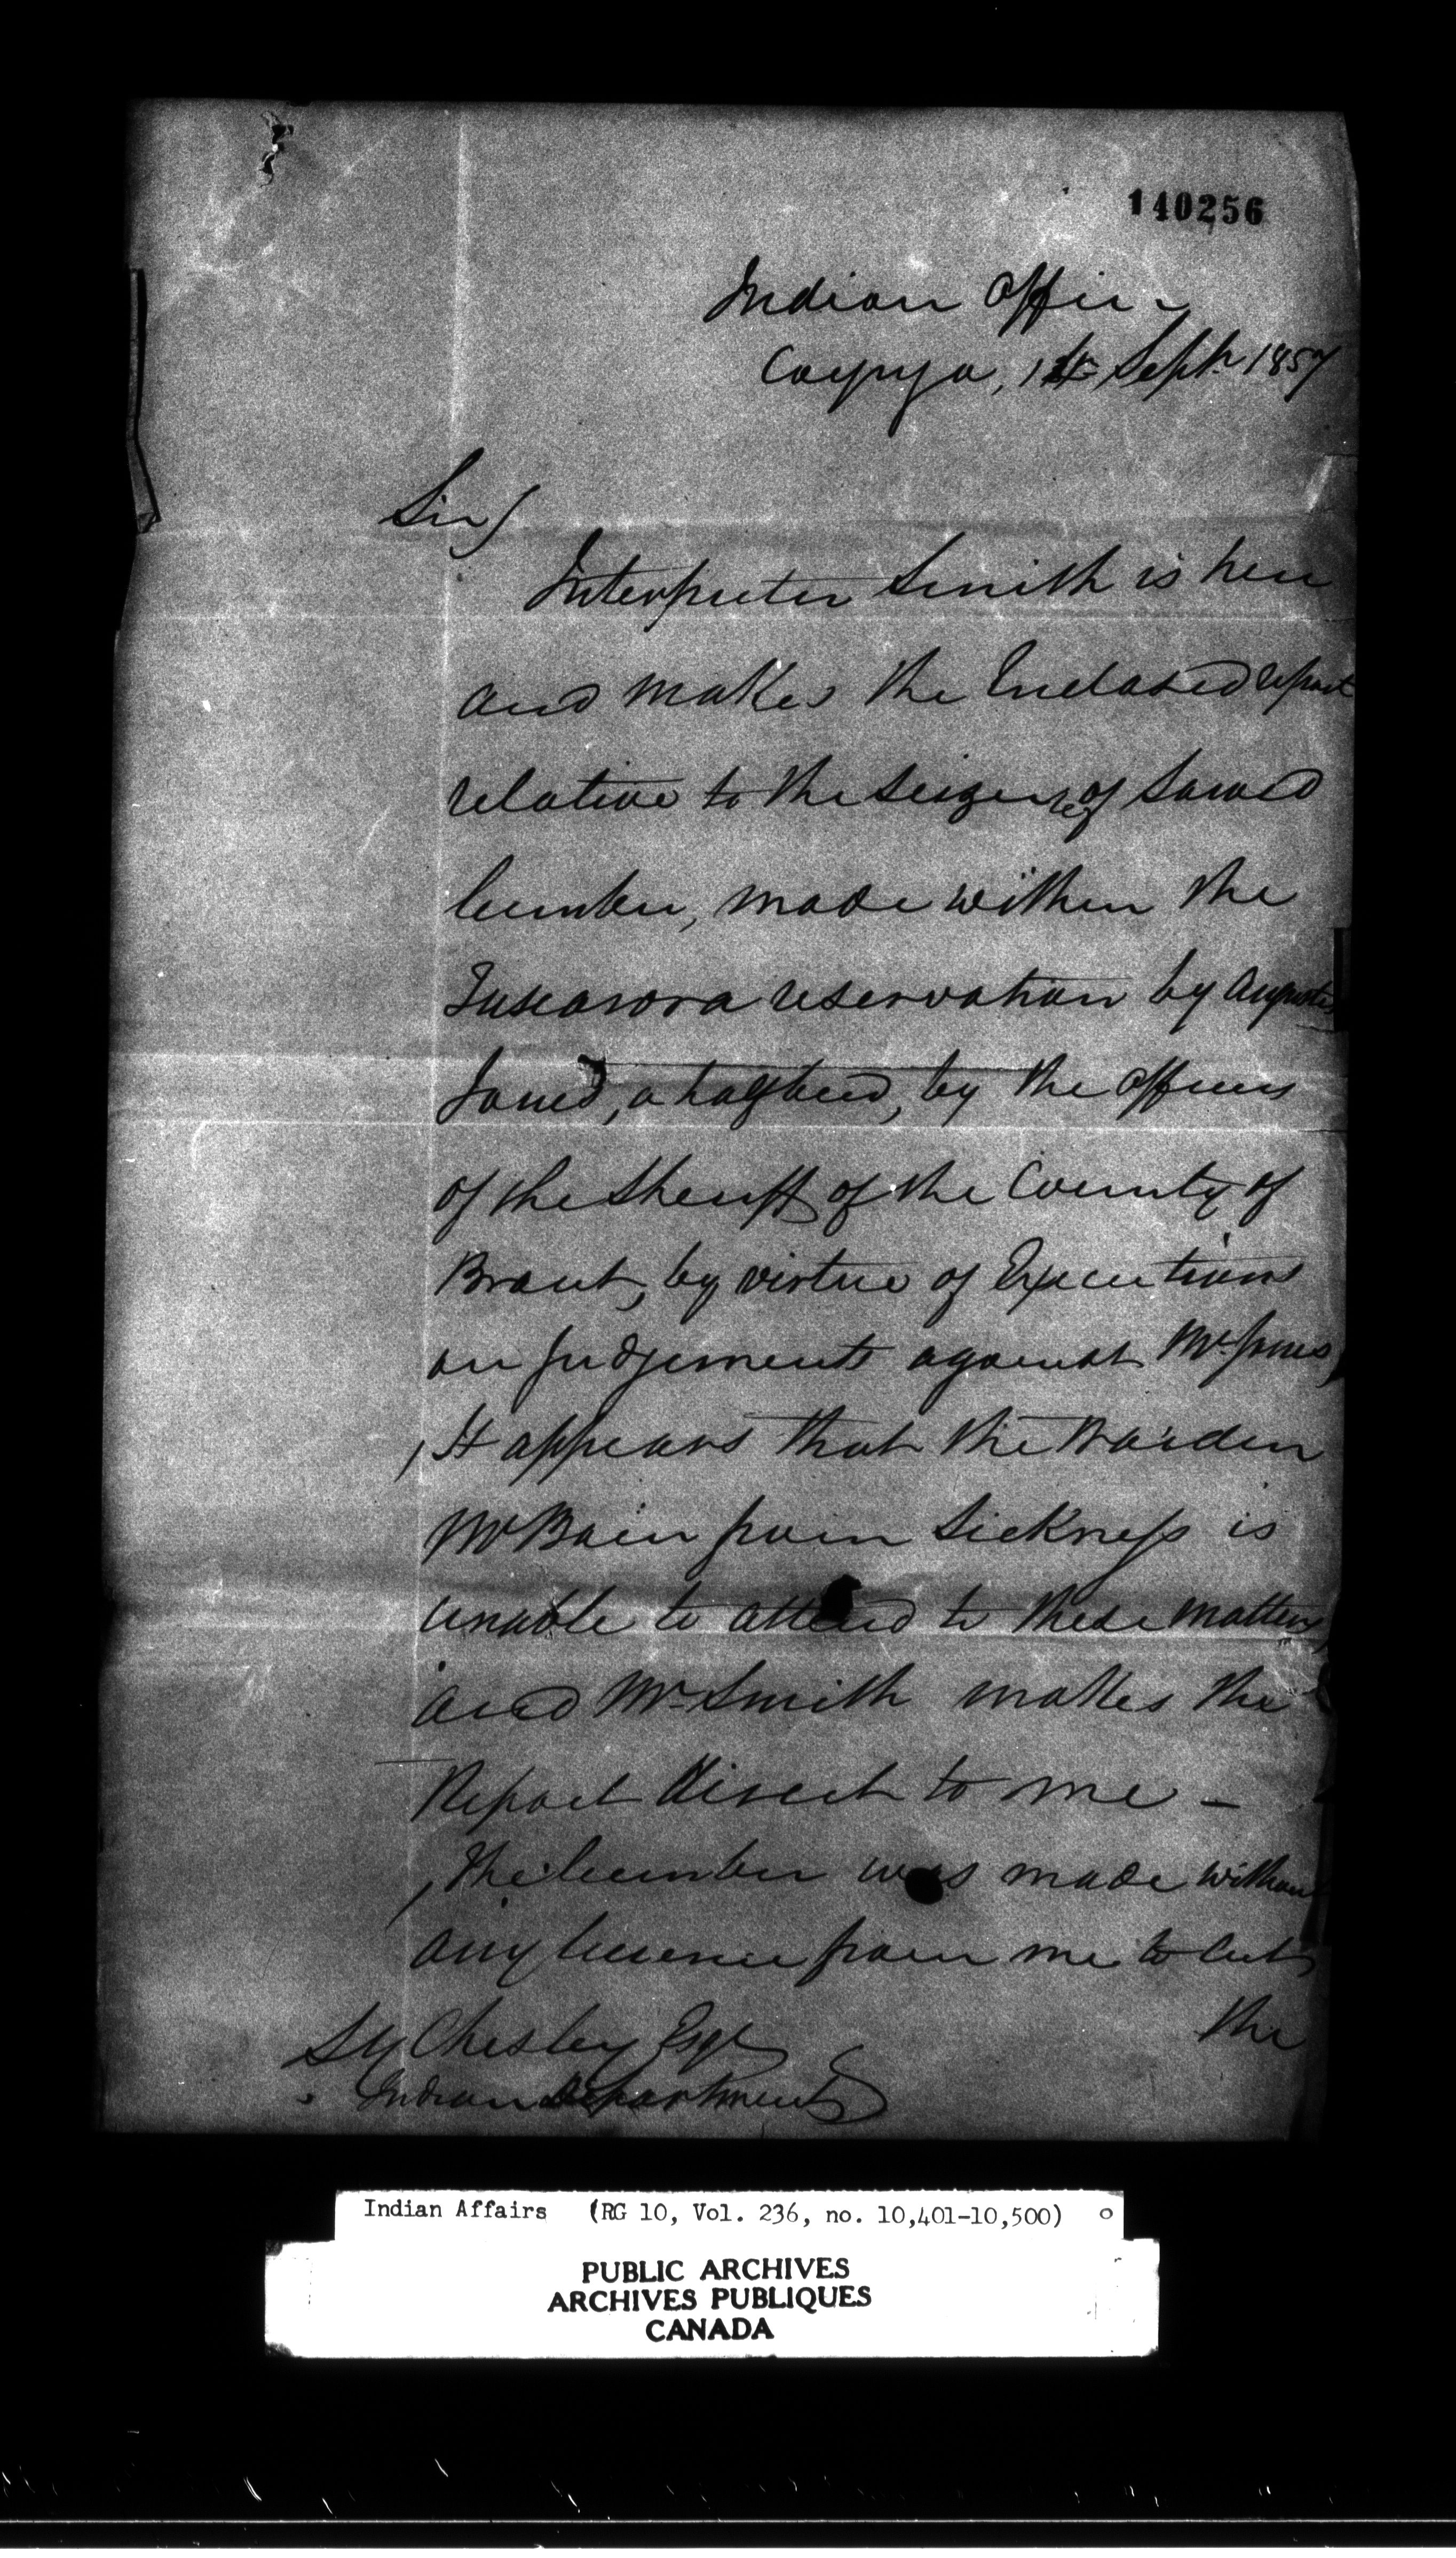 140256
Indian Office
Cayuga, 1st Sept. 1857
Sir/
Interpreter Smith is here
and makes the Enclosed report
relative to the seizure of Sawed
lumber, made within the
Tuscarora reservation by Augustus
Jones, a halfbreed, by the officers
of the Sheriff of the County of
Brant, by virtue of Executions
on Judgements against Mr. Jones,
It appears that the Warden
Mr Bain from Sickness is
unable to attend to these matters,
and Mr. Smith makes the
Report direct to me -
The lumber was made without
any license from me to cut
the
S Y Chesley Esqr
Indian Department
Indian Affairs (RG 10, Vol. 236, no. 10,401-10,500)
PUBLIC ARCHIVES
ARCHIVES PUBLIQUES
CANADA